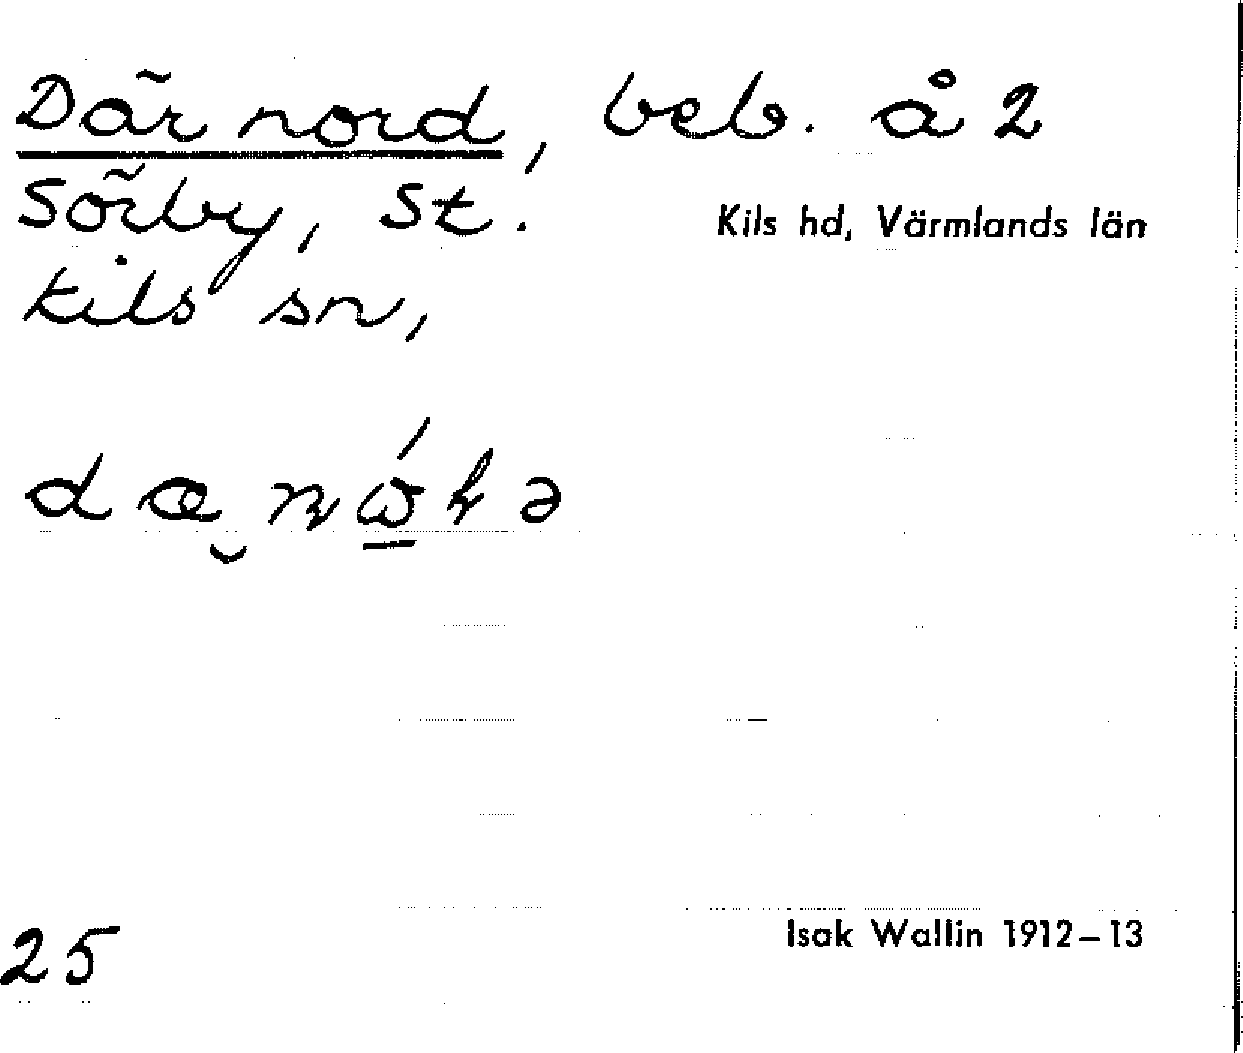 Där nord, beb. å 2
Sörby, St.
Kils hd, Värmlands län
Kils sn,
25
Isak Wallin 1912–13